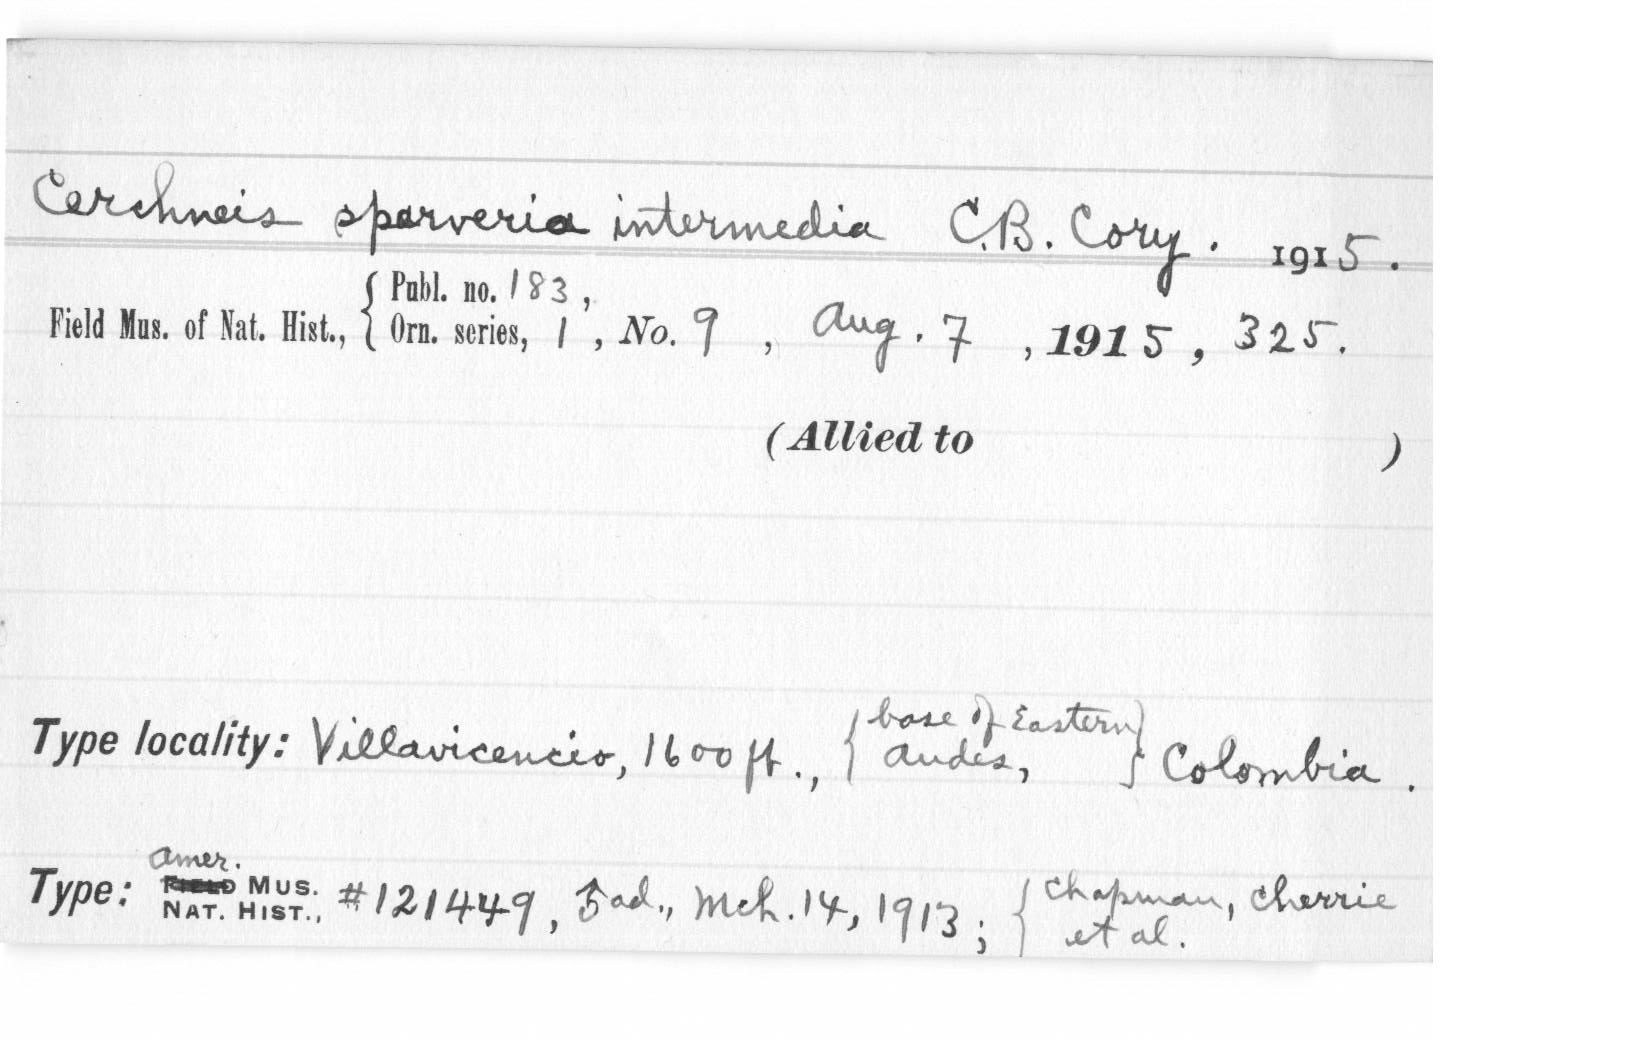 Cerchneis sparveria intermedia C.B. Cory. 1915.
Field Mus. of Nat. Hist., { Publ. no. 183,
Orn. series, 1, No. 9, Aug. 7, 1915, 325.
(Allied to )
Type locality: Villavicencio, 1600 ft., { base of Eastern
Andes, } Colombia.
Amer.
Type: FIELD MUS.
NAT. HIST., #121449, ♂ ad., Mch. 14, 1913; { Chapman, Cherrie
et al.